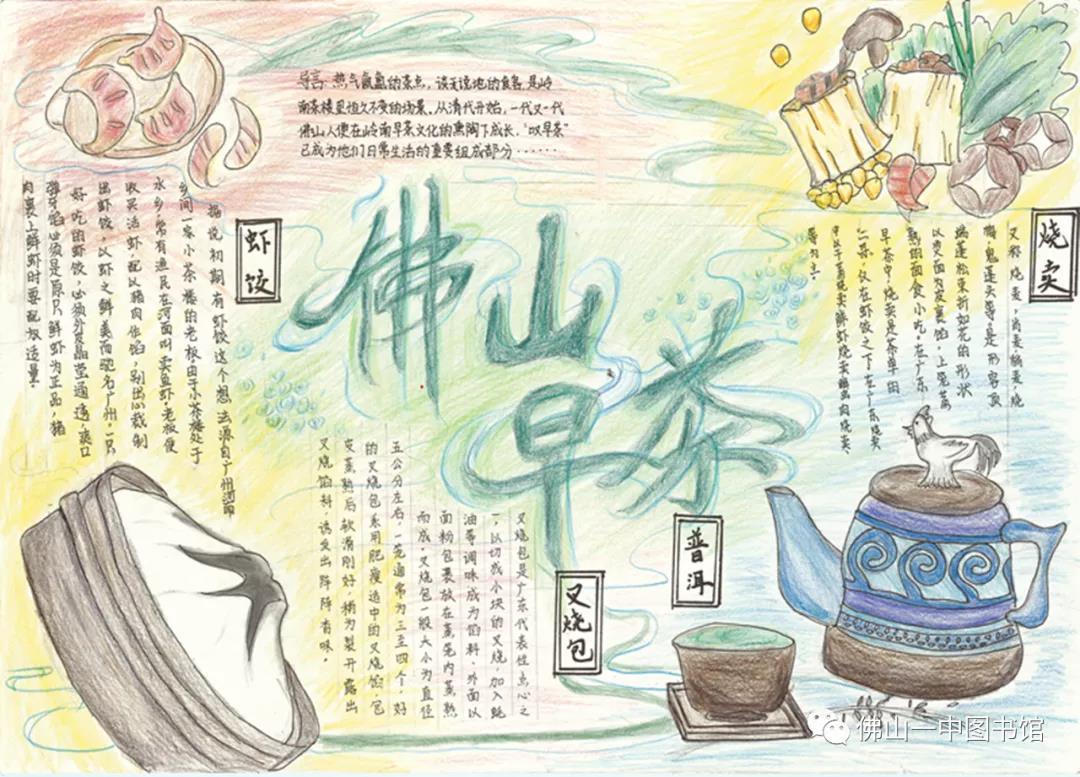 导言: 热气氤氲的茶点,谈天说地的食客,是岭
南茶楼里恒久不变的场景。从清代开始,一代又一代
佛山人便在岭南早茶文化的熏陶下成长,“叹早茶”
已成为他们日常生活的重要组成部分······
佛山
早茶
虾饺
据说初期有虾饺这个想法源自广州
乡间一家小茶楼的老板由于小茶楼处于
水乡,常有渔民在河面叫卖鱼虾,老板便
收买活虾,配以猪肉作馅,别出心裁制
出虾饺,以虾之鲜美而驰名广州,一只
好吃的虾饺,必须外皮晶莹通透,爽口
弹牙馅必须是原只鲜虾为正品,猪
肉裹上鲜虾时要配放适量。
烧卖
又称烧麦,肖麦稍麦,烧
梅,鬼蓬头等是形容顶
端蓬松束折如花的形状
以烫面为皮裹馅,上笼蒸
熟的面食小吃。在广东
早茶中,烧卖是茶单的
仅在虾饺之下在广东烧卖
中以干蒸烧卖鲜虾烧卖猪肉烧卖
等为主。
普洱
叉烧包
叉烧包是广东代表性点心之
一,以切成小块的叉烧,加入蚝
油等调味成为馅料,外面以
面粉包裹放在蒸笼内蒸熟
而成,叉烧包一般大小为直径
五公分左右,一笼通常为三至四个,好
的叉烧包系用肥瘦适中的叉烧馅,包
皮蒸熟后软滑刚好,稍为裂开露出
叉烧馅料,诱发出阵阵香味。
佛山一中图书馆